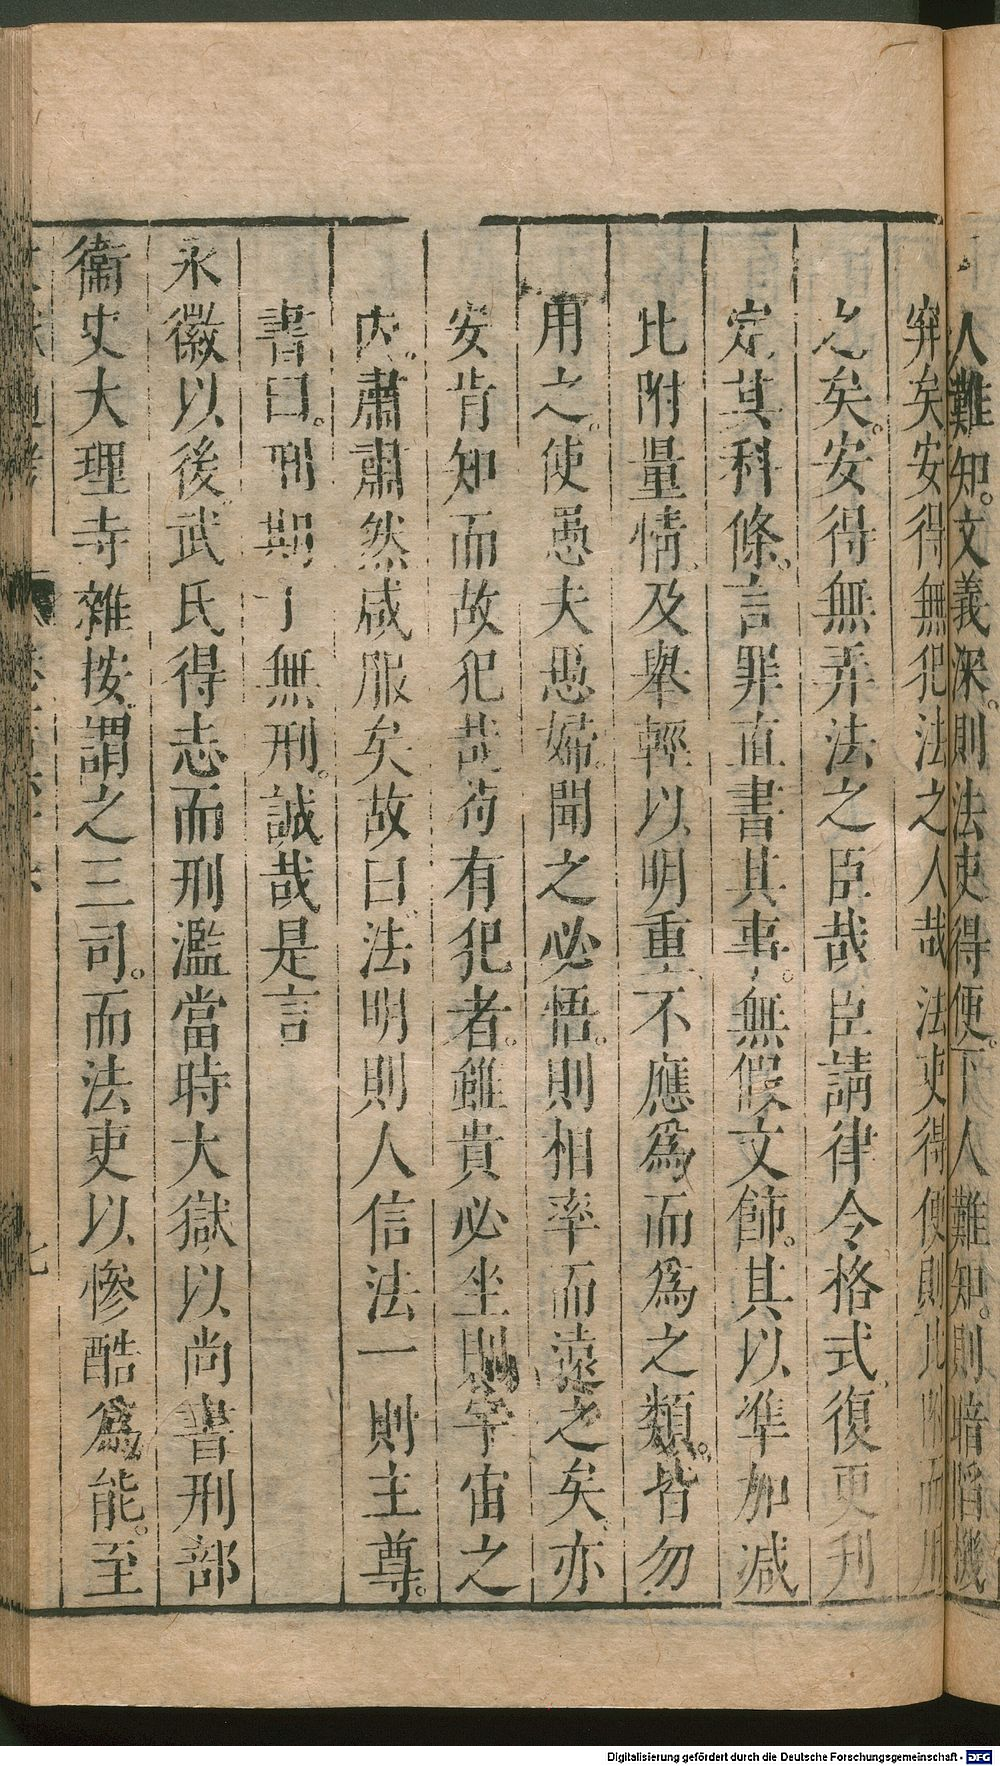 人難知。文義深。則法吏得便。下人難知。則暗陷機
穽矣安得無犯法之人哉法吏得便則比附而用
之矣。安得無弄法之臣哉臣請律令格式復更刊
定其科條。言罪直書其事。無假文飾。其以準加减
比附量情及舉輕以明重不應爲而爲之類。皆勿
用之。使愚夫愚婦。聞之必悟。則相率而遠之矣亦
安肯知而故犯哉苟有犯者。雖貴必坐則宇宙之
內。肅肅然咸服矣故曰法明則人信法一則主尊。
書曰。刑期于無刑。誠哉是言
永徽以後武氏得志而刑濫當時大獄以尚書刑部
衞史大理寺雜按謂之三司。而法吏以慘酷爲能。至
七
Digitalisierung gefördert durch die Deutsche Forschungsgemeinschaft - DFG